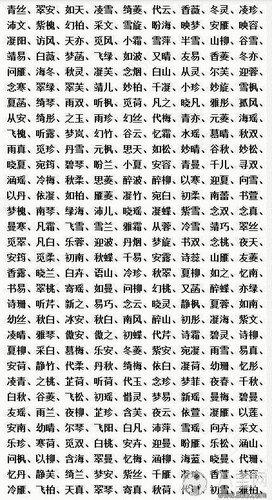 青丝、翠安、如天、凌雪、绮菱、代云、香薇、冬灵、凌珍、
沛文、紫槐、幻柏、采文、雪旋、盼海、映梦、安雁、映容、
凝阳、访风、天亦、觅风、小霜、雪萍、半雪、山柳、谷雪、
靖易、白薇、梦菡、飞绿、如波、又晴、友易、香菱、冬亦、
问雁、海冬、秋灵、凝芙、念烟、白山、从灵、尔芙、迎蓉、
念寒、翠绿、翠芙、靖儿、妙柏、千凝、小珍、妙旋、雪枫、
夏菡、绮琴、雨双、听枫、觅荷、凡之、晓凡、雅彤、孤风、
从安、绮彤、之玉、雨珍、幻丝、代梅、青亦、元菱、海瑶、
飞槐、听露、梦岚、幻竹、谷云、忆霜、水瑶、慕晴、秋双、
雨真、觅珍、丹雪、元枫、思天、如松、妙晴、谷秋、妙松、
晓夏、宛筠、碧琴、盼兰、小夏、安容、青曼、千儿、寻双、
涵瑶、冷梅、秋柔、思菱、醉波、醉柳、以寒、迎夏、向雪、
以丹、依凝、如柏、雁菱、凝竹、宛白、初柔、南蕾、书萱、
梦槐、南琴、绿海、沛儿、晓瑶、凝蝶、紫雪、念双、念真、
曼寒、凡霜、飞雪、雪兰、雅霜、从蓉、冷雪、靖巧、翠丝、
觅翠、凡白、乐蓉、迎波、丹烟、梦旋、书双、念桃、夜天、
安筠、觅柔、初南、秋蝶、千易、安露、诗蕊、山雁、友菱、
香露、晓兰、白卉、语山、冷珍、秋翠、夏柳、如之、忆南、
书易、翠桃、寄瑶、如曼、问柳、幻桃、又菡、醉蝶、亦绿、
诗珊、听芹、新之、易巧、念云、晓灵、静枫、夏蓉、如南、
幼丝、秋白、冰安、秋白、南风、醉山、初彤、凝海、紫文、
凌晴、雅琴、傲安、傲之、初蝶、代芹、诗霜、碧灵、诗柳、
夏柳、采白、慕梅、乐安、冬菱、紫安、宛凝、雨雪、易真、
安荷、静竹、代柔、丹秋、绮梅、依白、凝荷、幼珊、忆彤、
凌青、之桃、芷荷、听荷、代玉、念珍、梦菲、夜春、千秋、
白秋、谷菱、飞松、初瑶、惜灵、梦易、新瑶、碧曼、友瑶、
友瑶、雨兰、夜柳、芷珍、含芙、夜云、依萱、凝雁、以莲、
安南、幼晴、尔琴、飞阳、白凡、沛萍、雪瑶、向卉、采文、
乐珍、寒荷、觅双、白桃、安卉、迎曼、盼雁、乐松、涵山、
问枫、以柳、含海、翠曼、忆梅、涵柳、海蓝、晓曼、代珊、
忆丹、静芙、绮兰、梦安、紫丝、千雁、凝珍、香萱、梦容、
冷雁、飞柏、天真、翠琴、寄真、秋荷、代珊、初雪、雅柏、